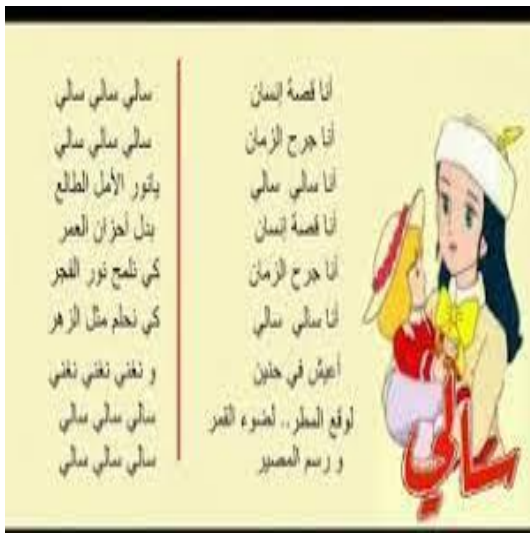 أنا قصة إنسان
أنا جرح الزمان
أنا سالي سالي
أنا قصة إنسان
أنا جرح الزمان
أنا سالي سالي
أعيش في حنين
لوقع السطر.. لضوء القمر
و رسم المصير
سالي سالي سالي
سالي سالي سالي
يانور الأمل الطالع
بدل أحزان العمر
كي نلمح نور الفجر
كي نحلم مثل الزهر
و نغني نغني نغني
سالي سالي سالي
سالي سالي سالي
سالي